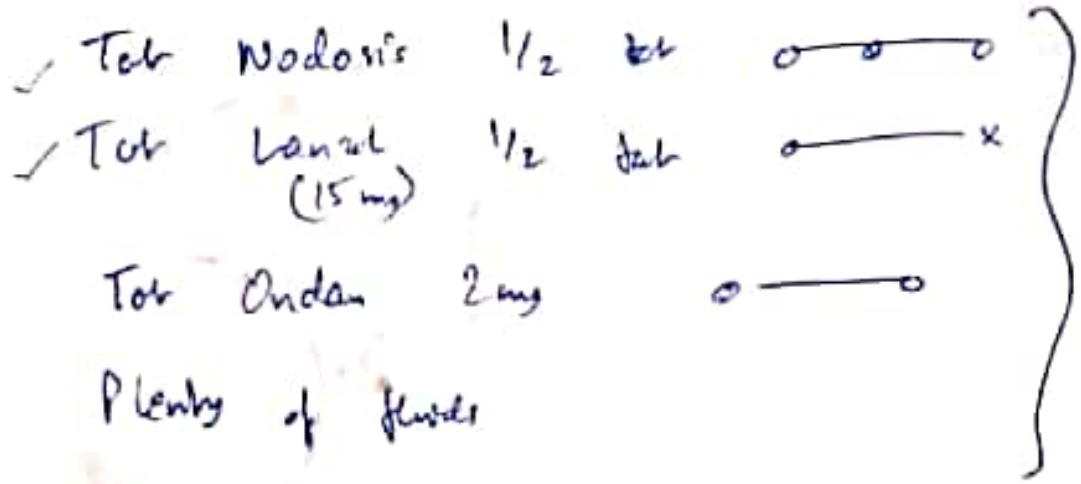 Tab Nodosis 1/2 tab o—o—o
Tab Lanzol 1/2 tab o—x
(15 mg)
Tab Ondan 2 mg o—o
Plenty of fluids